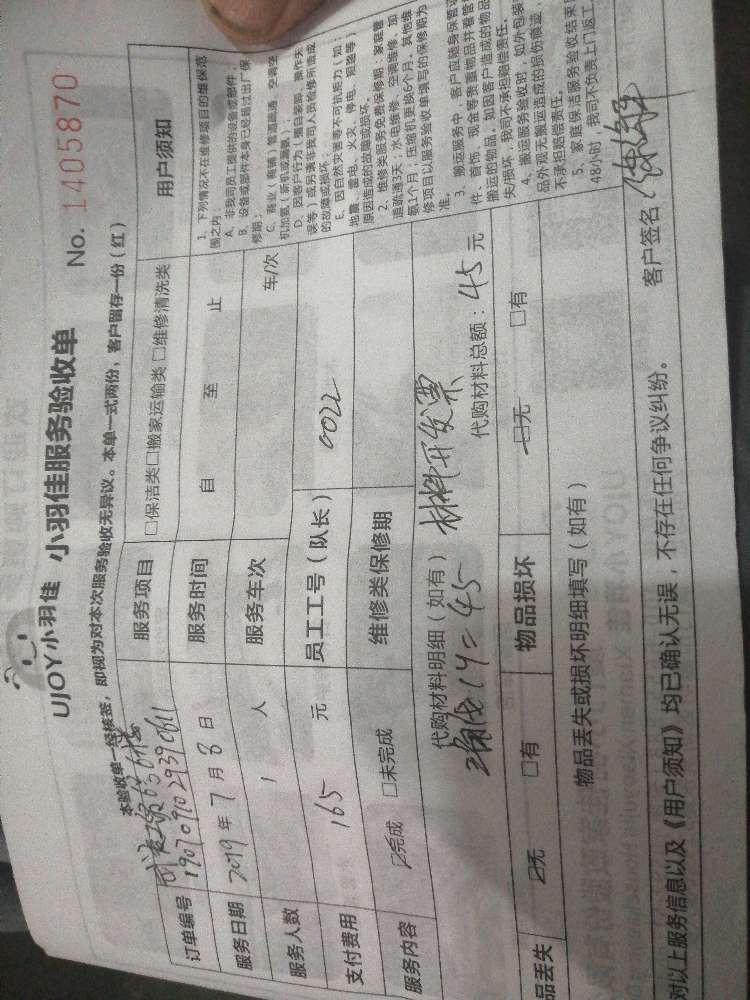 UJOY小羽佳 小羽佳服务验收单 No. 1405870
本验收单一经核签，即视为对本次服务验收无异议。本单一式两份，客户留存一份（红）
订单编号 1907091029390611
服务项目 □保洁类□搬家运输类□维修清洗类
服务日期 2019年7月8日
服务时间 自 至 止
服务人数 1 人
服务车次 车/次
支付费用 165 元
员工工号（队长） 0022
服务内容 ☑完成 □未完成
维修类保修期
代购材料明细（如有） 材料开发票
1个=45
代购材料总额：45元
品丢失 ☑无 □有
物品损坏 □无 □有
物品丢失或损坏明细填写（如有）
对以上服务信息以及《用户须知》均已确认无误，不存在任何争议纠纷。
客户签名
用户须知
1、下列情况不在维修项目的维保范
围之内：
A、非我司员工提供的设备或部件；
B、设备或部件本身已经超过出厂保
修期；
C、商业（商铺）管道疏通、空调空
机加氨（新机或漏氨）；
D、因客户行为（擅自装卸、操作失
误等）或另请非我司人员检修所造成
的故障或损坏；
E、因自然灾害等不可抗拒力（如：
地震、雷电、火灾、停电、短路等）
原因造成的故障或损坏。
2、维修类服务免费保修期：家庭管
道疏通3天；水电维修、空调维修、加
氨1个月；压缩机更换6个月。其他维
修项目以服务验收单填写的保修期为
准。
3、搬运服务中，客户应随身保管证
件、首饰、现金等贵重物品并看管
搬运的物品。如因客户造成的物品
失/损坏，我司不承担赔偿责任。
4、搬运服务验收时，如外包装
品外观无搬运造成的损伤痕迹，
不承担赔偿责任。
5、家庭保洁服务验收结束
48小时，我司不负责上门返工